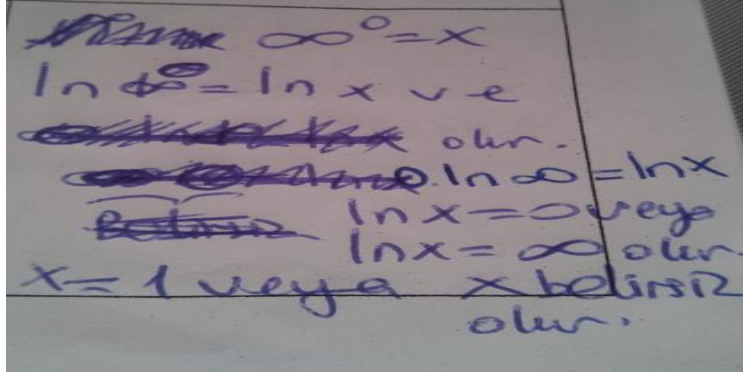 ∞⁰ = x
ln ∞⁰ = ln x ve
olur.
0.ln ∞ = ln x
ln x = 0 veya
ln x = ∞ olur.
x = 1 veya x belirsiz
olur.